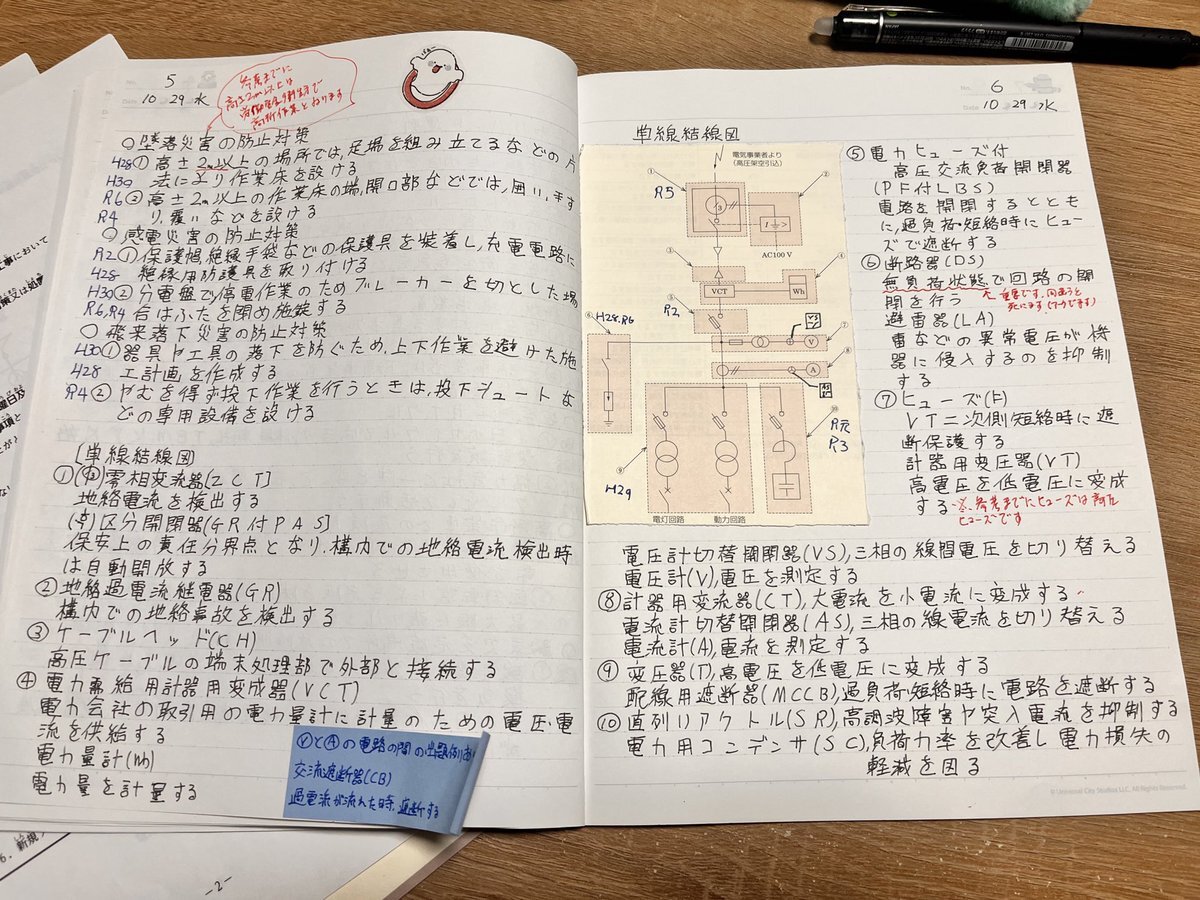 5
10 29 水
参考までに
高さ2m以上は
労働安全衛生法で
高所作業となります
○墜落災害の防止対策
H28 ①高さ2m以上の場所では,足場を組み立てるなどの方
H30 法により作業床を設ける
R6 ②高さ2m以上の作業床の端,開口部などでは,囲い,手す
R4 り,覆いなどを設ける
○感電災害の防止対策
R2 ①保護帽,絶縁手袋などの保護具を装着し,充電電路に
H28 絶縁用防護具を取り付ける
H30 ②分電盤で停電作業のためブレーカーを切とした場
R6,R4 合はふたを閉め施錠する
○飛来落下災害の防止対策
H30 ①器具や工具の落下を防ぐため,上下作業を避けた施
H28 工計画を作成する
R4 ②やむを得ず投下作業を行うときは,投下シュートな
どの専用設備を設ける
[単線結線図
①(中)零相変流器(ZCT]
地絡電流を検出する
区分開閉器(GR付PAS]
保安上の責任分界点となり,構内での地絡電流検出時
は自動開放する
②地絡過電流継電器(GR)
構内での地絡事故を検出する
③ケーブルヘッド(CH)
高圧ケーブルの端末処理部で外部と接続する
④電力需給用計器用変成器(VCT)
電力会社の取引用の電力量計に計量のための電圧・電
流を供給する
電力量計(Wh)
電力量を計量する
ⓋとⒶの電路の間の出題例
交流遮断器(CB)
過電流が流れた時,遮断する
No. 6
Date 10 29 水
単線結線図
電気事業者より
(高圧架空引込)
① R5
②
I>
AC100 V
③
VCT
Wh
④
⑤ R2
⑥ H28.R6
VS
V
⑦
AS
A
⑧
⑨ H29
⑩ R元
R3
電灯回路
動力回路
⑤電力ヒューズ付
高圧交流負荷開閉器
(PF付LBS)
電路を開閉するととも
に,過負荷・短絡時にヒュー
ズで遮断する
⑥断路器(DS)
無負荷状態で回路の開
閉を行う
重要です。間違うと
死にます(ガチです)
避雷器(LA)
雷などの異常電圧が機
器に侵入するのを抑制
する
⑦ヒューズ(F)
VT二次側短絡時に遮
断保護する
計器用変圧器(VT)
高電圧を低電圧に変成
する
※参考までにヒューズは高圧
ヒューズです
電圧計切替開閉器(VS),三相の線間電圧を切り替える
電圧計(V),電圧を測定する
⑧計器用変流器(CT),大電流を小電流に変成する
電流計切替開閉器(AS),三相の線電流を切り替える
電流計(A),電流を測定する
⑨変圧器(T),高電圧を低電圧に変成する
配線用遮断器(MCCB),過負荷・短絡時に電路を遮断する
⑩直列リアクトル(SR),高調波障害や突入電流を抑制する
電力用コンデンサ(SC),負荷力率を改善し電力損失の
軽減を図る
© Universal City Studios LLC. All Rights Reserved.
6. 新規
-2-